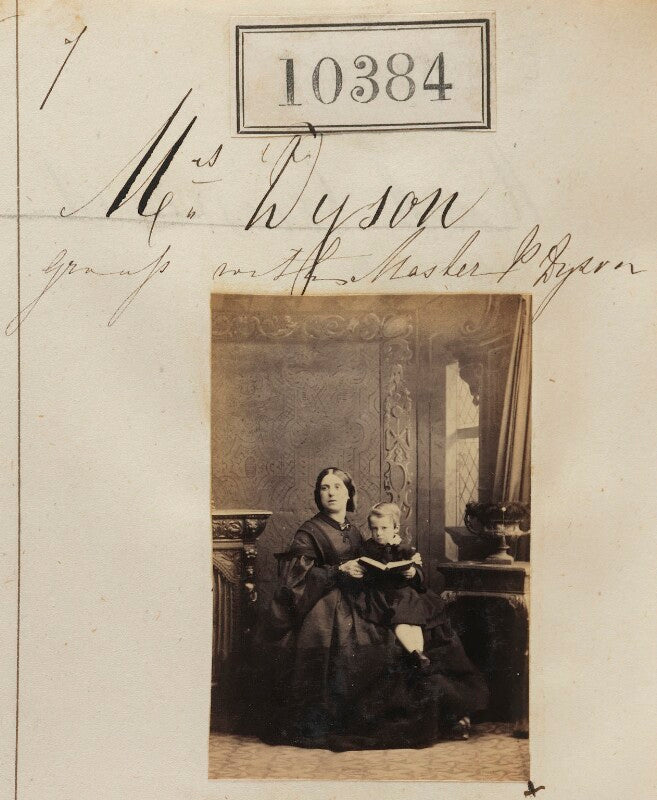 10384
Mrs Dyson
group with Master P Dyson